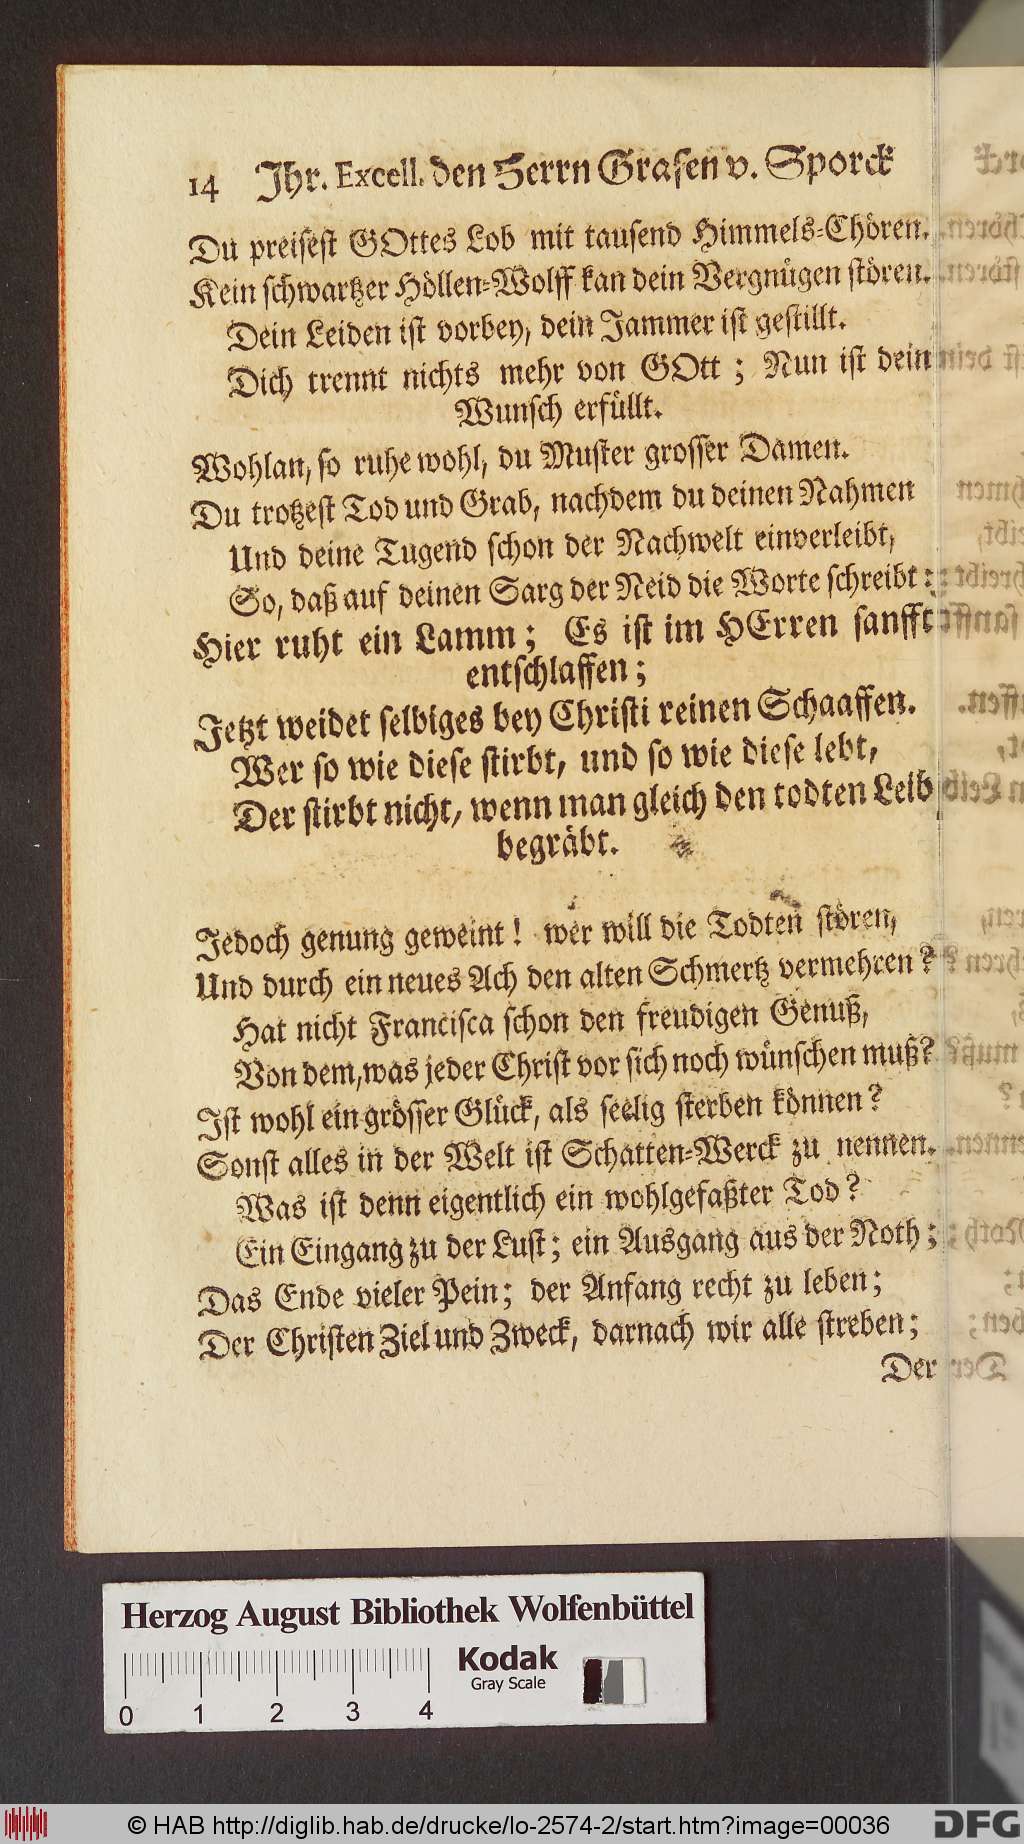 14 Ihr. Excell. den Herrn Grafen v. Sporck
Du preisest GOttes Lob mit tausend Himmels-Chören.
Kein schwartzer Höllen-Wolff kan dein Vergnügen stören.
Dein Leiden ist vorbey, dein Jammer ist gestillt.
Dich trennt nichts mehr von GOtt; Nun ist dein
Wunsch erfüllt.
Wohlan, so ruhe wohl, du Muster grosser Damen.
Du trotzest Tod und Grab, nachdem du deinen Nahmen
Und deine Tugend schon der Nachwelt einverleibt,
So, daß auf deinen Sarg der Neid die Worte schreibt:
Hier ruht ein Lamm; Es ist im HErren sanfft
entschlaffen;
Jetzt weidet selbiges bey Christi reinen Schaaffen.
Wer so wie diese stirbt, und so wie diese lebt,
Der stirbt nicht, wenn man gleich den todten Leib
begräbt.
Jedoch genung geweint! wer will die Todten stören,
Und durch ein neues Ach den alten Schmertz vermehren?
Hat nicht Francisca schon den freudigen Genuß,
Von dem, was jeder Christ vor sich noch wünschen muß?
Ist wohl ein grösser Glück, als seelig sterben können?
Sonst alles in der Welt ist Schatten-Werck zu nennen.
Was ist denn eigentlich ein wohlgefaßter Tod?
Ein Eingang zu der Lust; ein Ausgang aus der Noth;
Das Ende vieler Pein; der Anfang recht zu leben;
Der Christen Ziel und Zweck, darnach wir alle streben;
Der
Herzog August Bibliothek Wolfenbüttel
Kodak
Gray Scale
0 1 2 3 4
© HAB http://diglib.hab.de/drucke/lo-2574-2/start.htm?image=00036
DFG